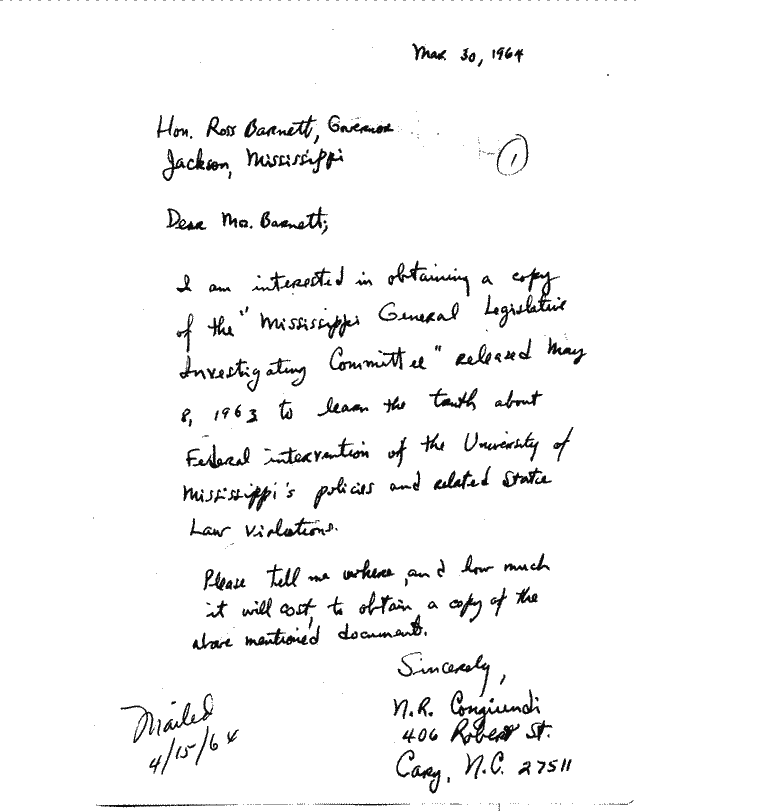 Mar. 30, 1964
Hon. Ross Barnett, Governor
Jackson, Mississippi
1
Dear Mr. Barnett;
I am interested in obtaining a copy
of the "Mississippi General Legislative
Investigating Committee" released May
8, 1963 to learn the truth about
Federal intervention of the University of
Mississippi's policies and related State
Law violations.
Please tell me where, and how much
it will cost, to obtain a copy of the
above mentioned document.
Sincerely,
N.R. Congiundi
406 Robert St.
Cary, N.C. 27511
Mailed
4/15/64